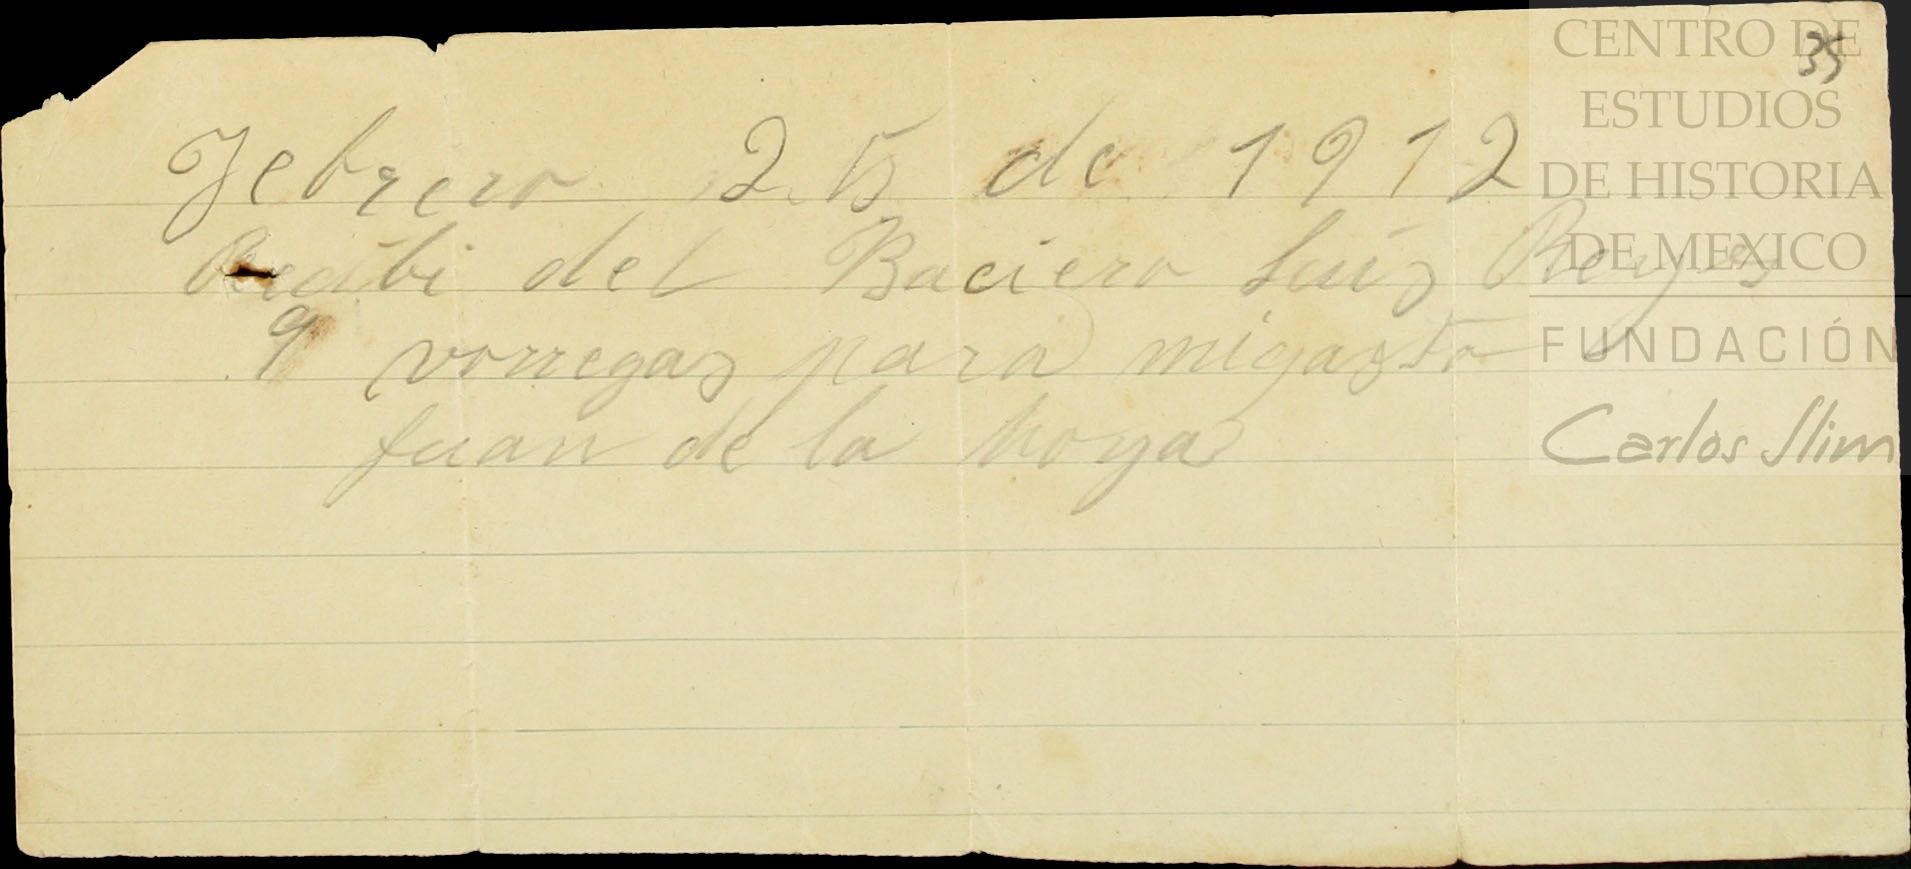 35
Febrero 25 de 1912
Recibi del Baciero Luis Reyes
9 vorregas para migasto
Juan de la hoya
CENTRO DE
ESTUDIOS
DE HISTORIA
DE MEXICO
FUNDACIÓN
Carlos Slim